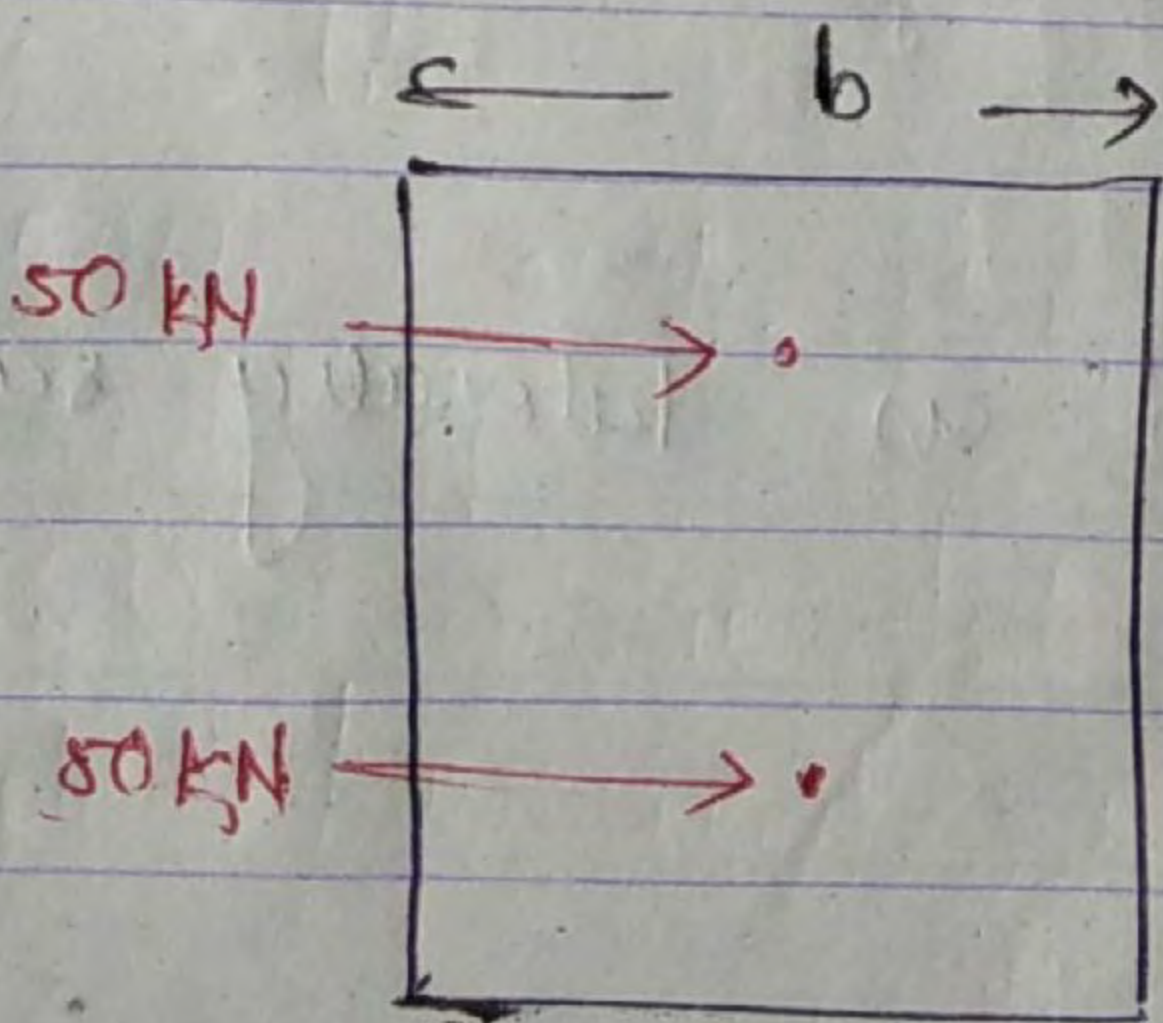 b
50 kN
80 kN